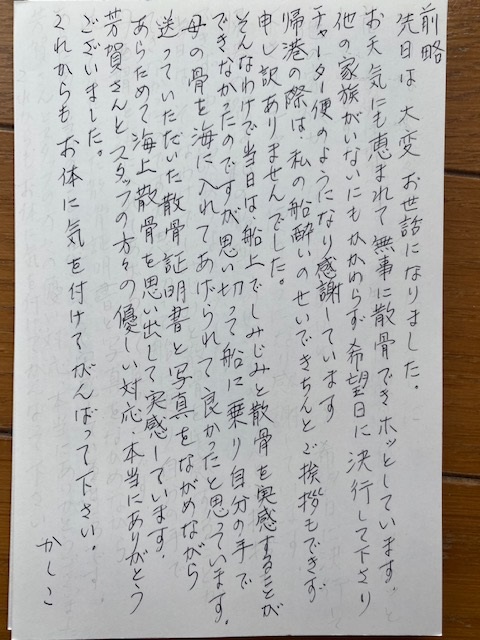 前略
先日は大変お世話になりました。
お天気にも恵まれて無事に散骨できホッとしています。
他の家族がいないにもかかわらず希望日に決行して下さり
チャーター便のようになり感謝しています
帰港の際は、私の船酔いのせいできちんとご挨拶もできず
申し訳ありませんでした。
そんなわけで当日は、船上でしみじみと散骨を実感することが
できなかったのですが思い切って船に乗り自分の手で
母の骨を海に入れてあげられて良かったと思っています。
送っていただいた散骨証明書と写真をながめながら
あらためて海上散骨を思い出して実感しています。
芳賀さんとスタッフの方々の優しい対応、本当にありがとう
ございました。
これからもお体に気を付けてがんばって下さい。
かしこ